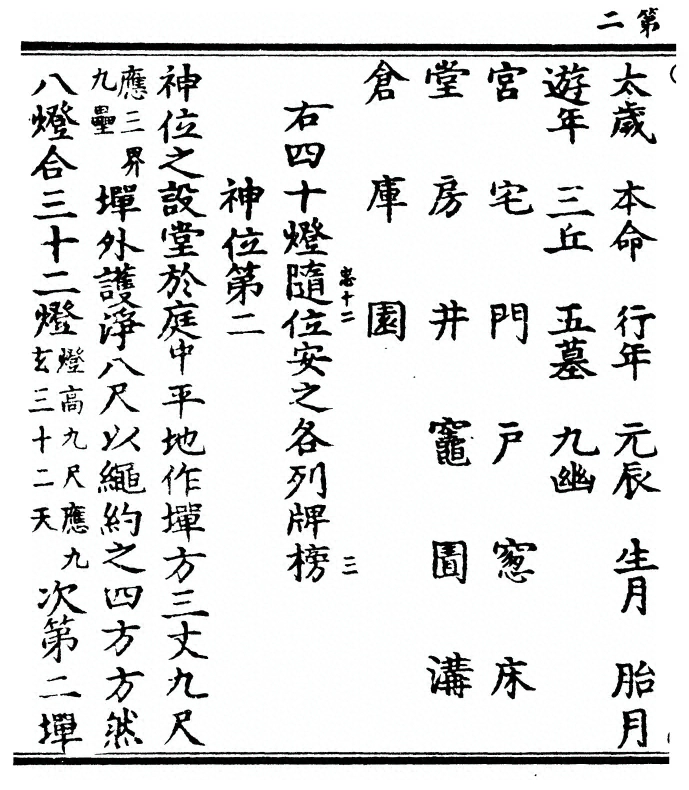 第二
太歲 本命 行年 元辰 生月 胎月
遊年 三丘 五墓 九幽
宮 宅 門 戶 窓 床
堂 房 井 竈 圊 溝
倉 庫 園
右四十燈隨位安之各列牌榜
忠十二 三
神位第二
神位之設堂於庭中平地作墠方三丈九尺
應三界九壘墠外護淨八尺以繩約之四方方然
八燈合三十二燈燈高九尺應九玄三十二天次第二墠